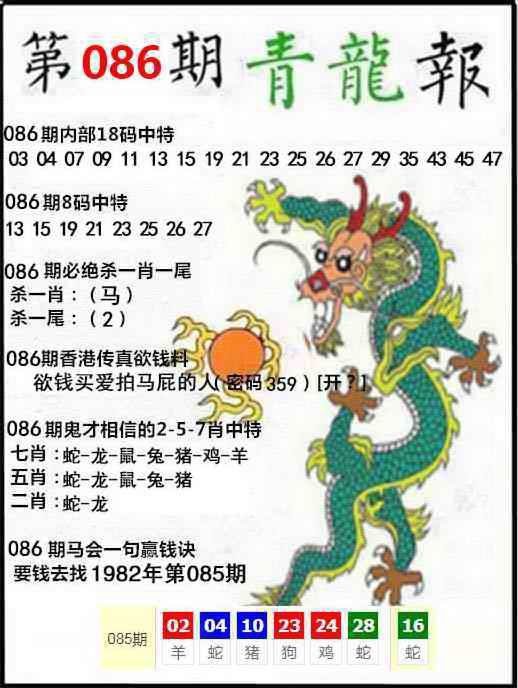 第086期青龍報
086期内部18码中特
03 04 07 09 11 13 15 19 21 23 25 26 27 29 35 43 45 47
086期8码中特
13 15 19 21 23 25 26 27
086 期必绝杀一肖一尾
杀一肖：（马）
杀一尾：（2）
086期香港传真欲钱料
欲钱买爱拍马屁的人(密码359）[开？]
086期鬼才相信的2-5-7肖中特
七肖：蛇-龙-鼠-兔-猪-鸡-羊
五肖：蛇-龙-鼠-兔-猪
二肖：蛇-龙
086 期马会一句赢钱诀
要钱去找1982年第085期
085期 02 04 10 23 24 28 16
羊 蛇 猪 狗 鸡 蛇 蛇